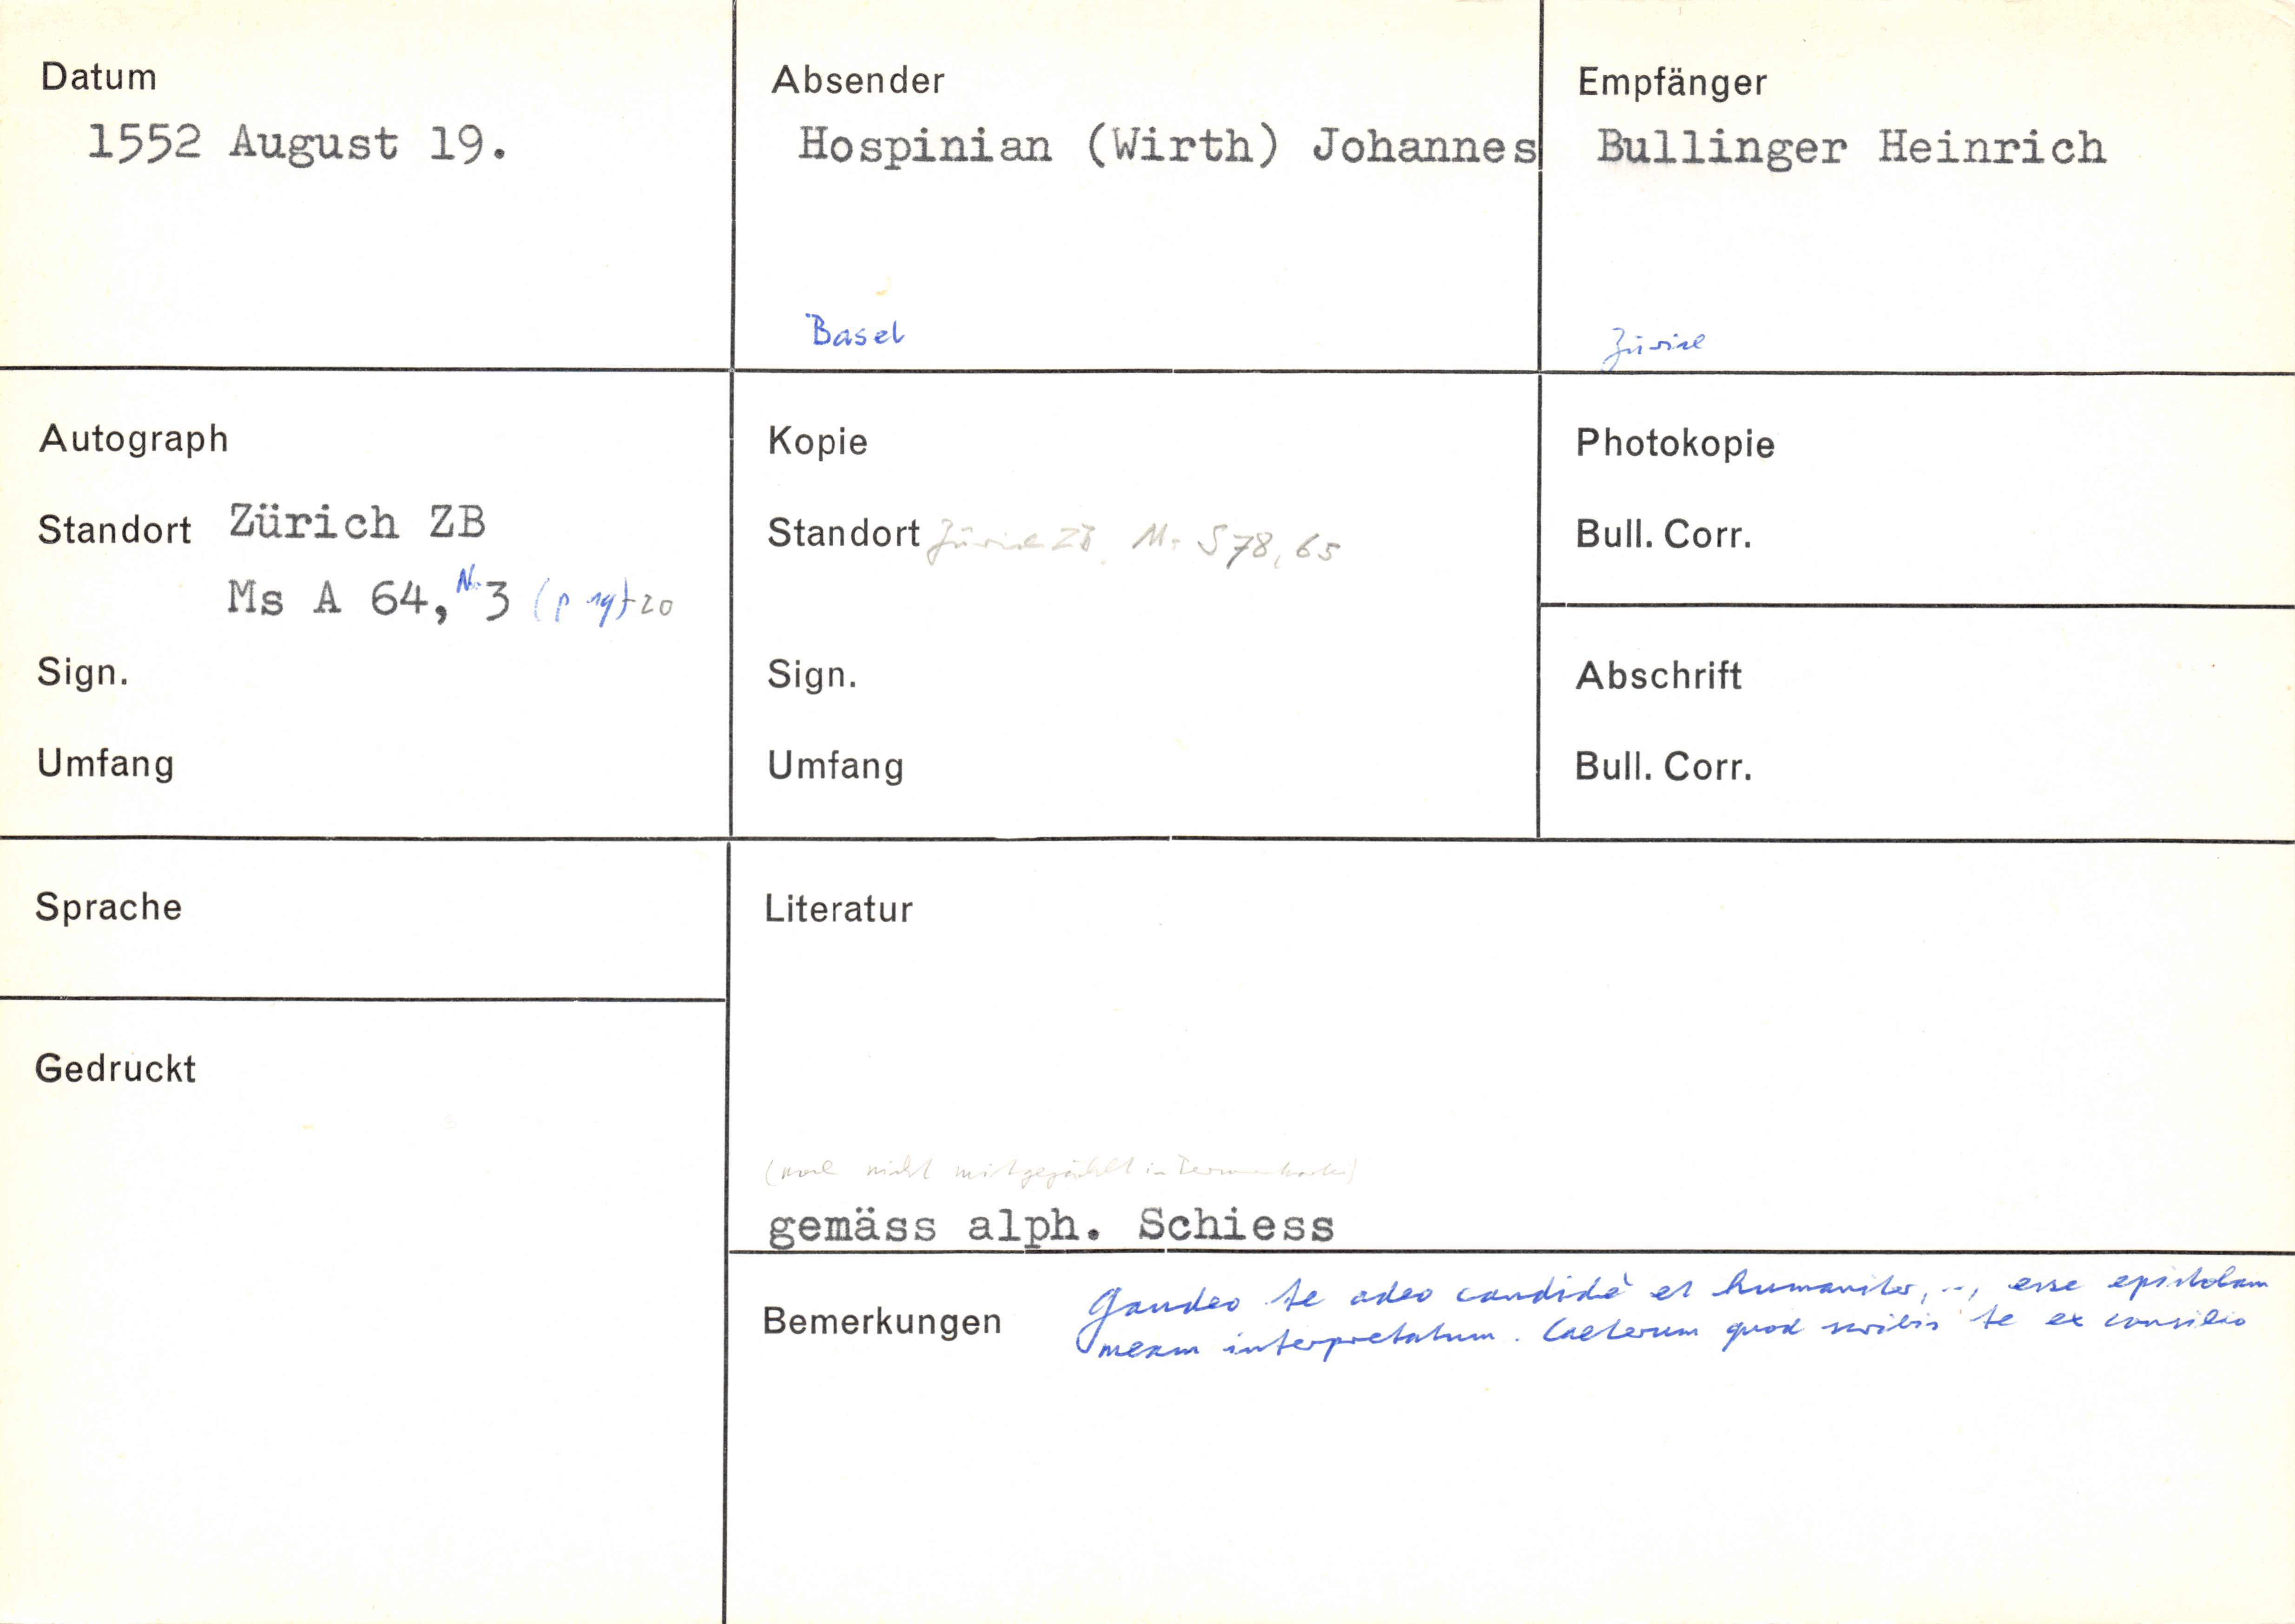 Datum
1552 August 19.
Absender
Hospinian (Wirth) Johannes
Basel
Empfänger
Bullinger Heinrich
Zürich
Autograph
Standort Zürich ZB
Ms A 64, Nr. 3 (p 19)-20
Sign.
Umfang
Kopie
Standort Zürich ZB, Ms S 78, 65
Sign.
Umfang
Photokopie
Bull. Corr.
Abschrift
Bull. Corr.
Sprache
Gedruckt
Literatur
(noch nicht mitgezählt in
gemäss alph. Schiess
Bemerkungen
Gaudeo te adeo candidè et humaniter, .., esse epistolam
meam interpretatum. Caeterum quod scribis te ex consilio